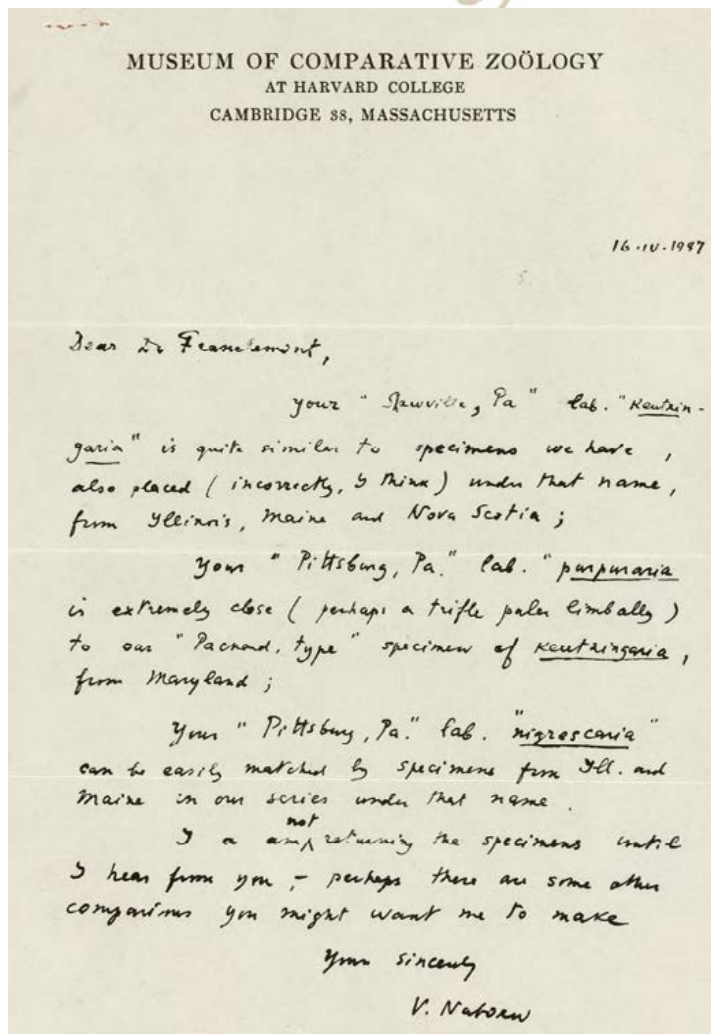 MUSEUM OF COMPARATIVE ZOÖLOGY
AT HARVARD COLLEGE
CAMBRIDGE 38, MASSACHUSETTS
16.IV.1947
Dear Dr Franclemont,
your " , Pa" lab. "kentrin-
garia" is quite similar to specimens we have,
also placed (incorrectly, I think) under that name,
from Illinois, Maine and Nova Scotia;
Your "Pittsburg, Pa." lab. "purpuraria
is extremely close (perhaps a trifle paler limbally)
to our "Packard, type" specimen of kentringaria,
from Maryland;
Your "Pittsburg, Pa." lab. "nigrescaria"
can be easily matched by specimens from Ill. and
Maine in our series under that name.
not
I a am returning the specimens until
I hear from you, – perhaps there are some other
comparisons you might want me to make
Yours sincerely
V. Nabokov